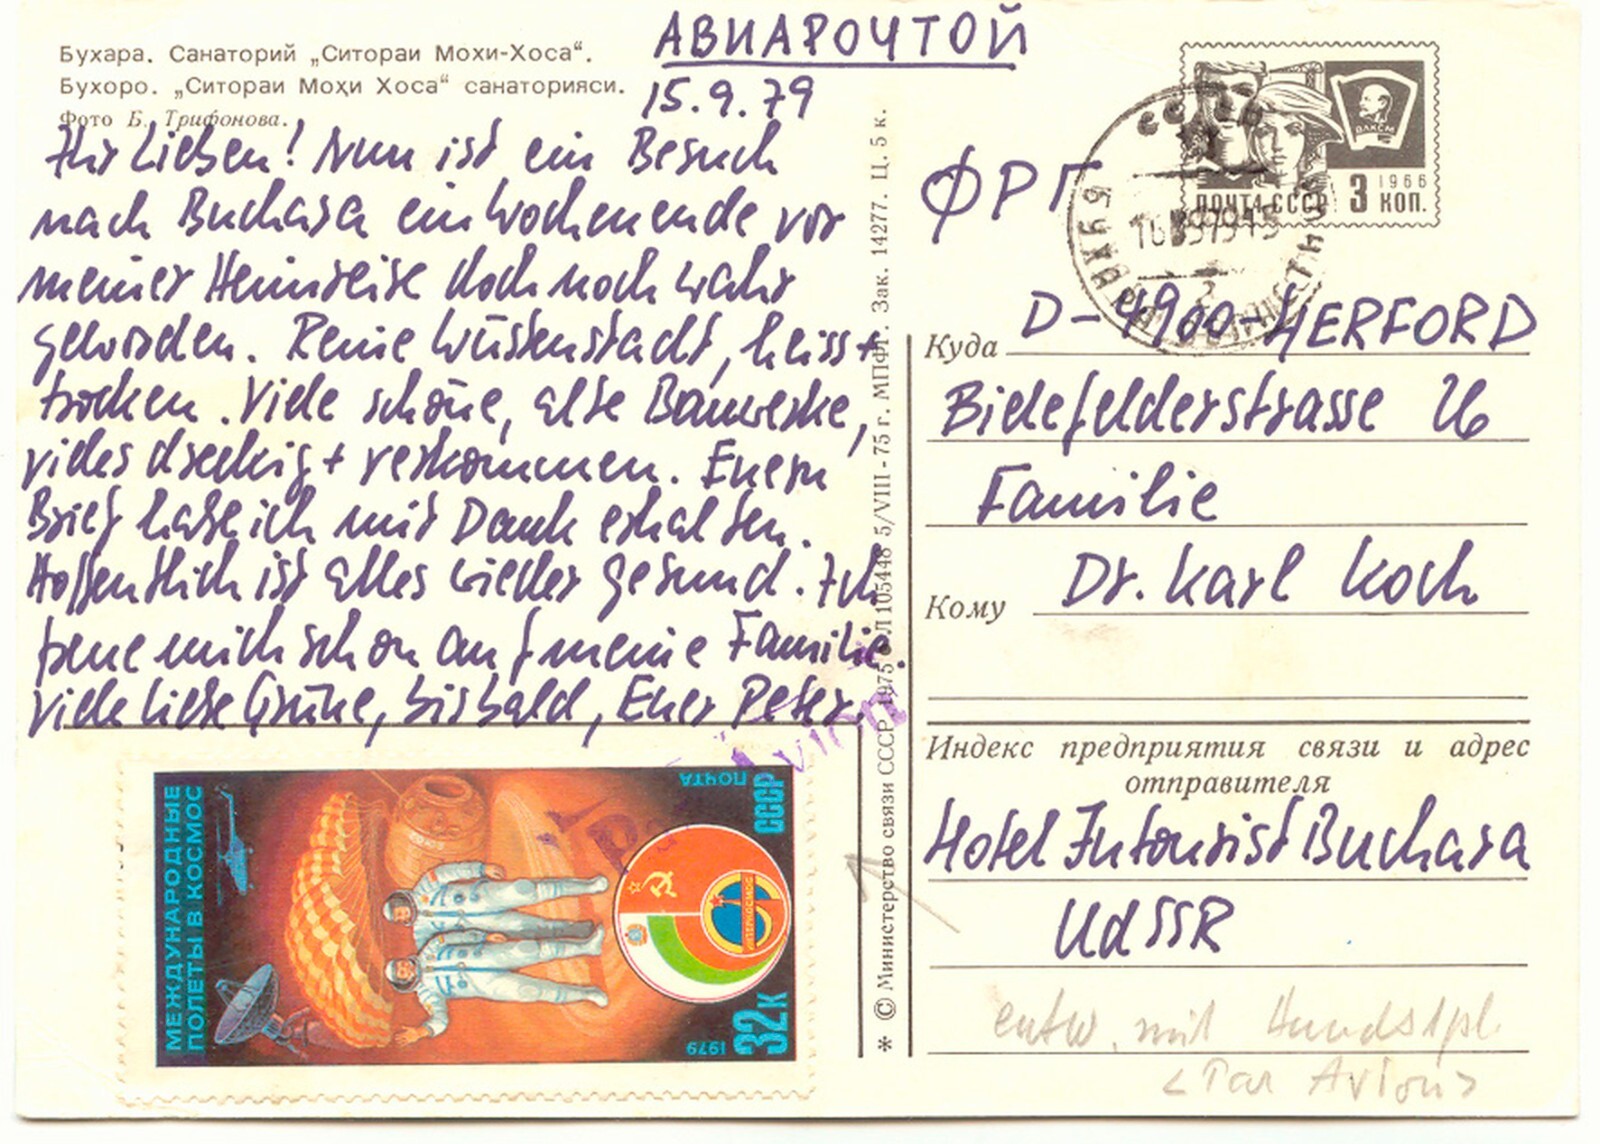 Бухара. Санаторий „Ситораи Мохи-Хоса“.
Бухоро. „Ситораи Моҳи Хоса“ санаторияси.
Фото Б. Трифонова.
АВИАПОЧТОЙ
15.9.79
Ihr Lieben! Nun ist ein Besuch
nach Buchara ein Wochenende vor
meiner Heimreise doch noch wahr
geworden. Reine Wüstenstadt, heiss +
trocken. Viele schöne, alte Bauwerke,
vieles dreckig + verkommen. Euern
Brief habe ich mit Dank erhalten.
Hoffentlich ist alles wieder gesund. Ich
freue mich schon auf meine Familie.
Viele liebe Grüße, bis bald, Euer Peter.
МЕЖДУНАРОДНЫЕ
ПОЛЕТЫ В КОСМОС
ПОЧТА
СССР
ИНТЕРКОСМОС
32к
1979
Avion
* © Министерство связи СССР, 1975 Л 105448 5/VIII-75 г. МПФГ. Зак. 14277. Ц. 5 к.
ВЛКСМ
ПОЧТА СССР 3 1966 КОП.
СССР
БУХАРА
ФРГ
Куда D-4900-HERFORD
Bielefelderstrasse 26
Familie
Кому Dr. Karl Koch
Индекс предприятия связи и адрес
отправителя
Hotel Intourist Buchara
UdSSR
entw. mit Handstpl.
<Par Avion>